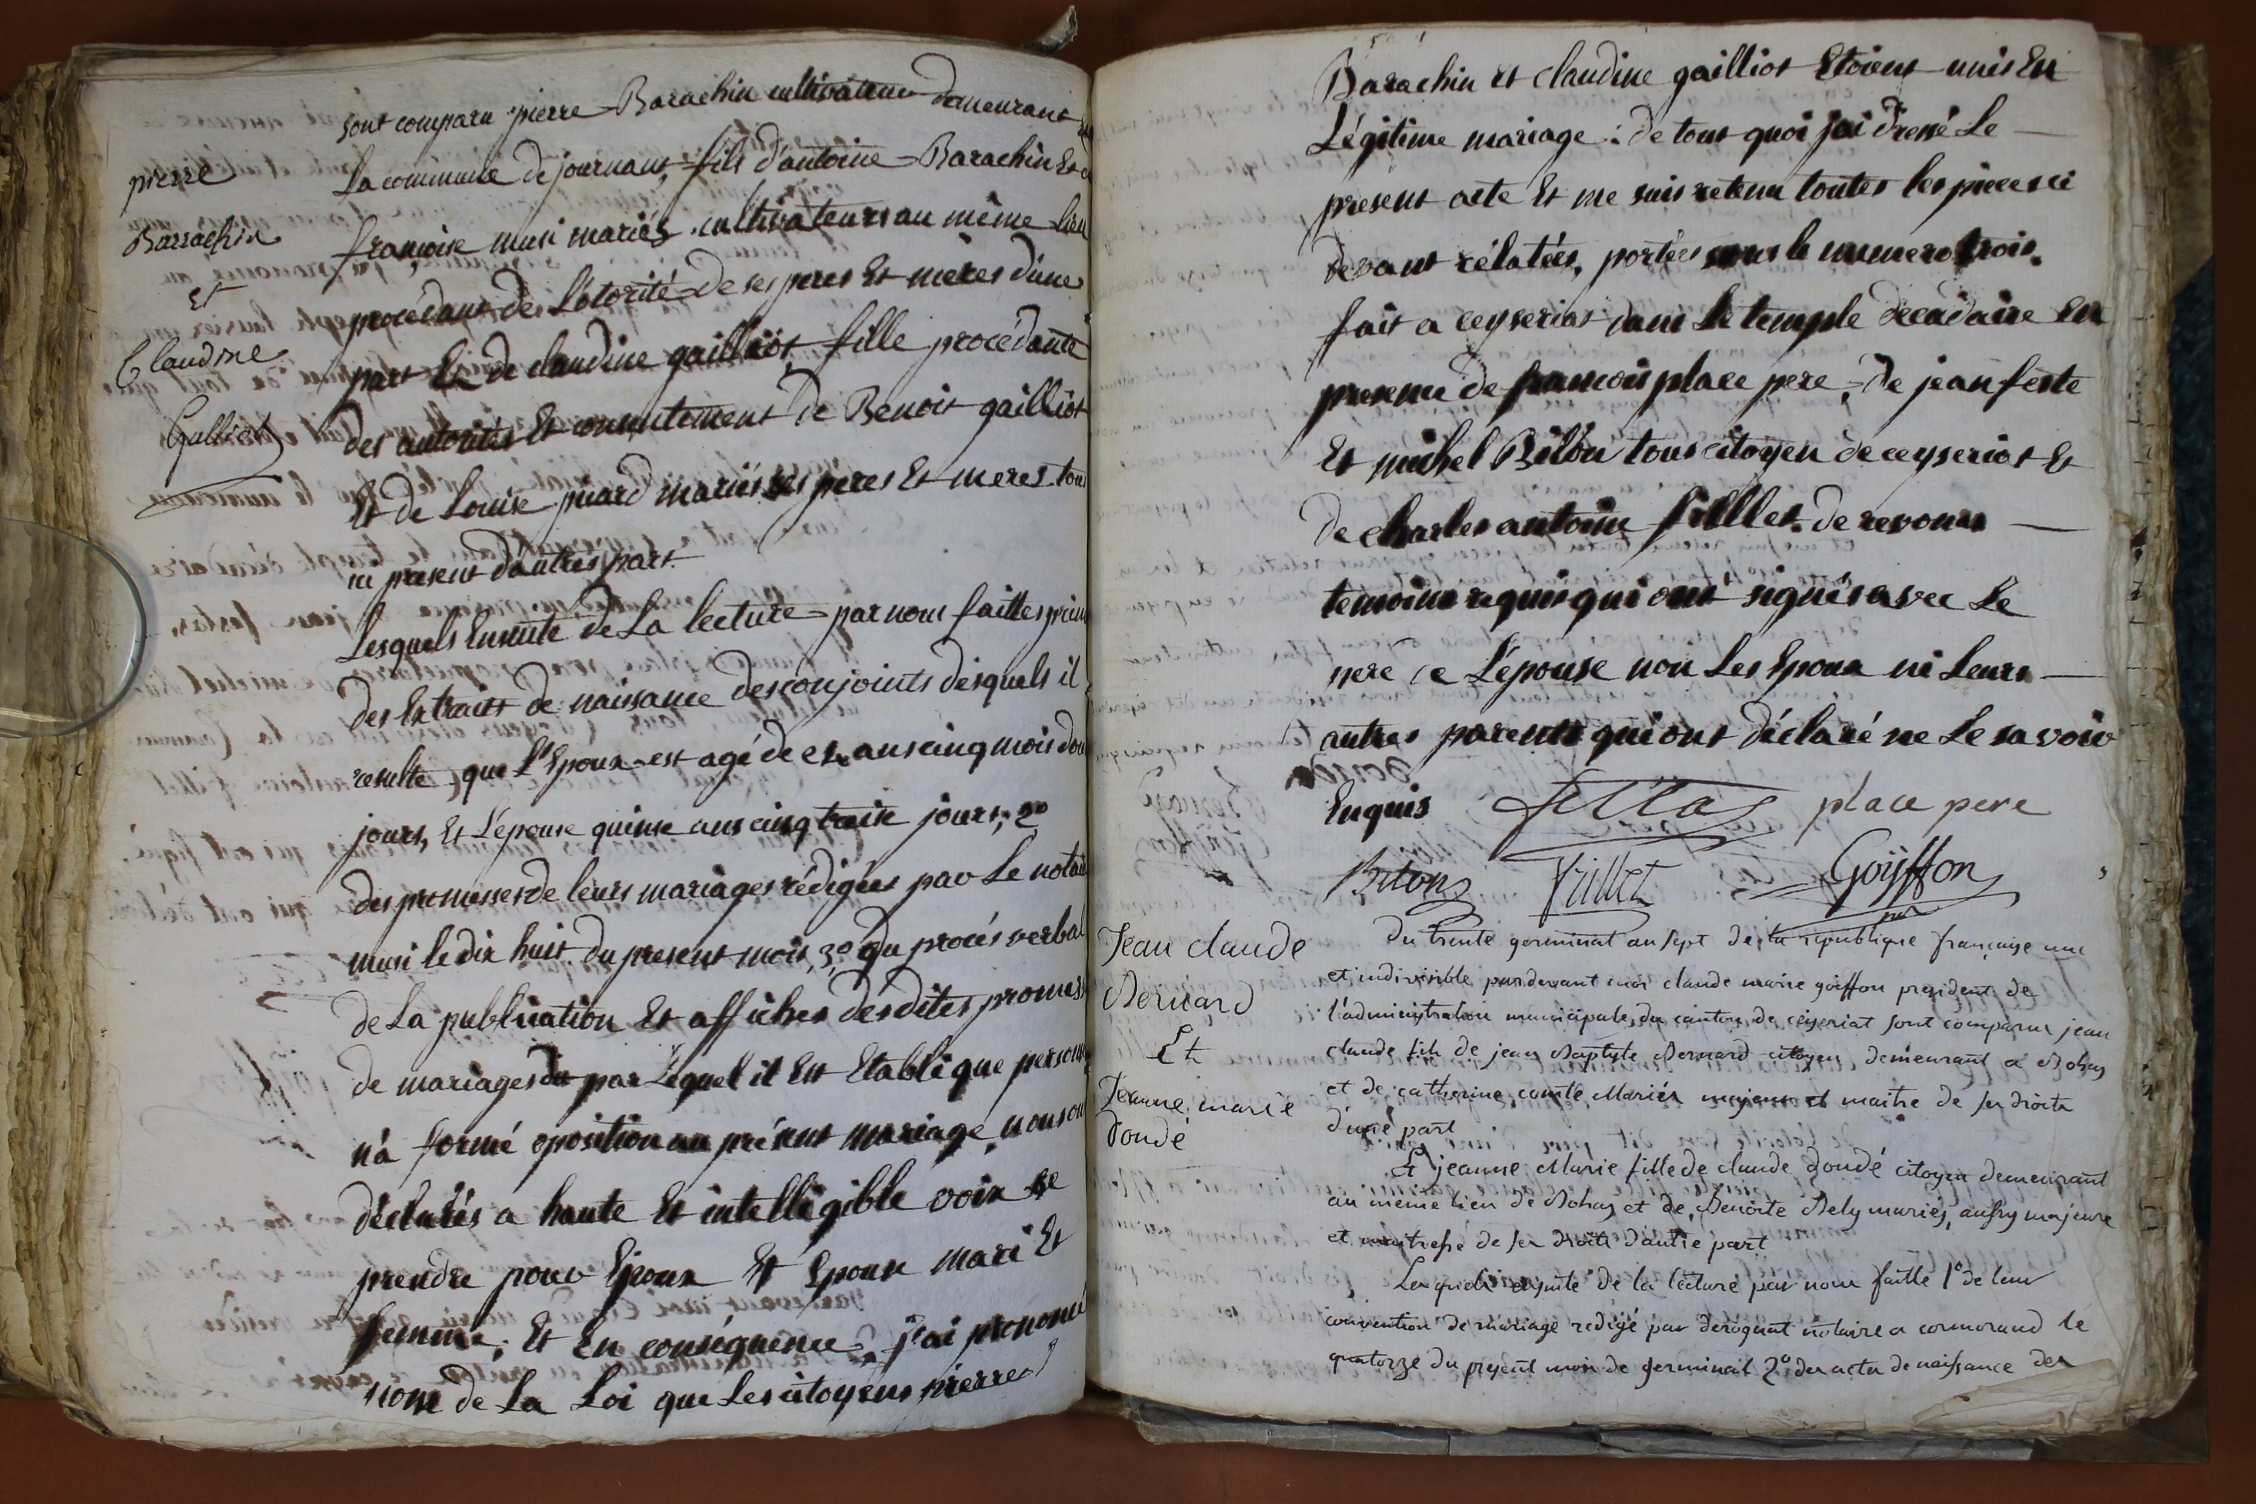 pierre
Barrachin
et
Claudine
Galliot
sont comparu pierre Barachin cultivateur demeurant
La commune de journans, fils d'antoine Barachin Et
françoise musi mariés cultivateurs au même lieu
procédant de L'otorité de ses peres Et mères d'une
part Et de claudine gailliot, fille procédante
des autorités Et consentement de Benoit gailliot
Et de Louise puard mariés ses peres Et meres tous
ici present d'autres part.
Lesquels Ensuite de La lecture par nous faittes
des Extraits de naissance des conjoints desquels il
resulte que L'Epoux est agé de ans cinq mois
jours, Et L'epouse quinse ans cinq jours, 2º
des promesses de leurs mariages rédigées par Le
musi le dix huit du present mois, 3º du procés verbal
de La publication Et affiches desdites
de mariages par Lequel il Est Etabli que
n'a formé oposition au présent mariage,
déclarés a haute Et intelligible voix se
prendre pour Epoux Et Epouse mari Et
femme, Et En conséquence, j'ai prononcé
nom de La Loi que Les citoyens pierre
Barachin Et claudine gailliot Etoient unis En
Légitime mariage : de tout quoi jai dressé Le
present acte Et me suis retenu toutes les pieces ci
devant rélatées, portées sous le numero trois.
fait a ceyseriat dans Le temple decadaire En
presence de francois place pere, de jean feste
Et michel Biton tous citoyen de ceyseriat Et
de charles antoine de revonas
temoins requis qui ont signés avec Le
pere de L'épouse non Les Epoux ni Leurs
autres parents qui ont déclaré ne Le savoir
Enquis place pere
Biton Goÿffon
Jean claude
Bernard
Et
Jeanne marie
Dondé
Du trente germinal an sept de la republique française une
et indivisible pardevant moi claude marie goiffon president de
l'administration municipale du canton de ceyseriat sont comparus jean
claude fils de jean Baptyste Bernard citoyen demeurant a Bohas
et de catherine comte Mariés majeur et maitre de ses droits
d'une part
Et jeanne Marie fille de claude dondé citoyen demeurant
au même lieu de Bohas et de Benoite Bely mariés, aussy majeure
et maitresse de ses droits d'autre part
Lesquels ensuite de la lecture par nous faitte 1º de leur
convention de mariage redigé par derognat notaire a cormorand le
quatorze du present mois de germinal 2º des actes de naissance des